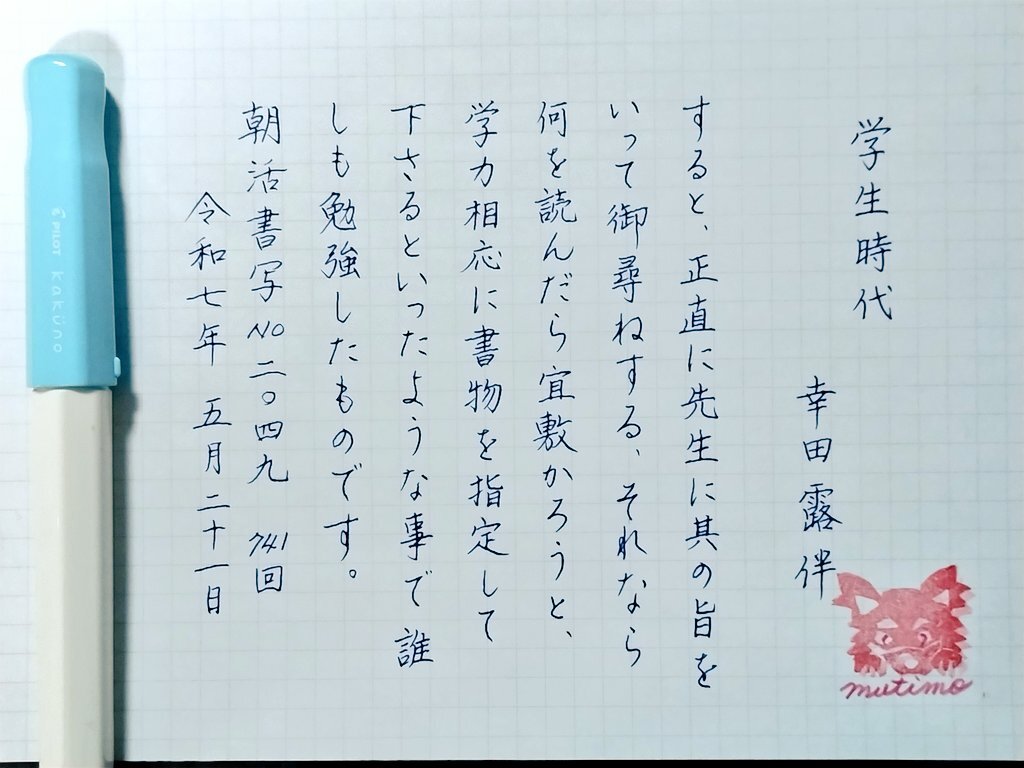 学生時代
幸田露伴
すると、正直に先生に其の旨を
いって御尋ねする、それなら
何を読んだら宜敷かろうと、
学力相応に書物を指定して
下さるといったような事で誰
しも勉強したものです。
朝活書写 NO 二〇四九 741回
令和七年 五月二十一日
mutimo
PILOT KaKüno